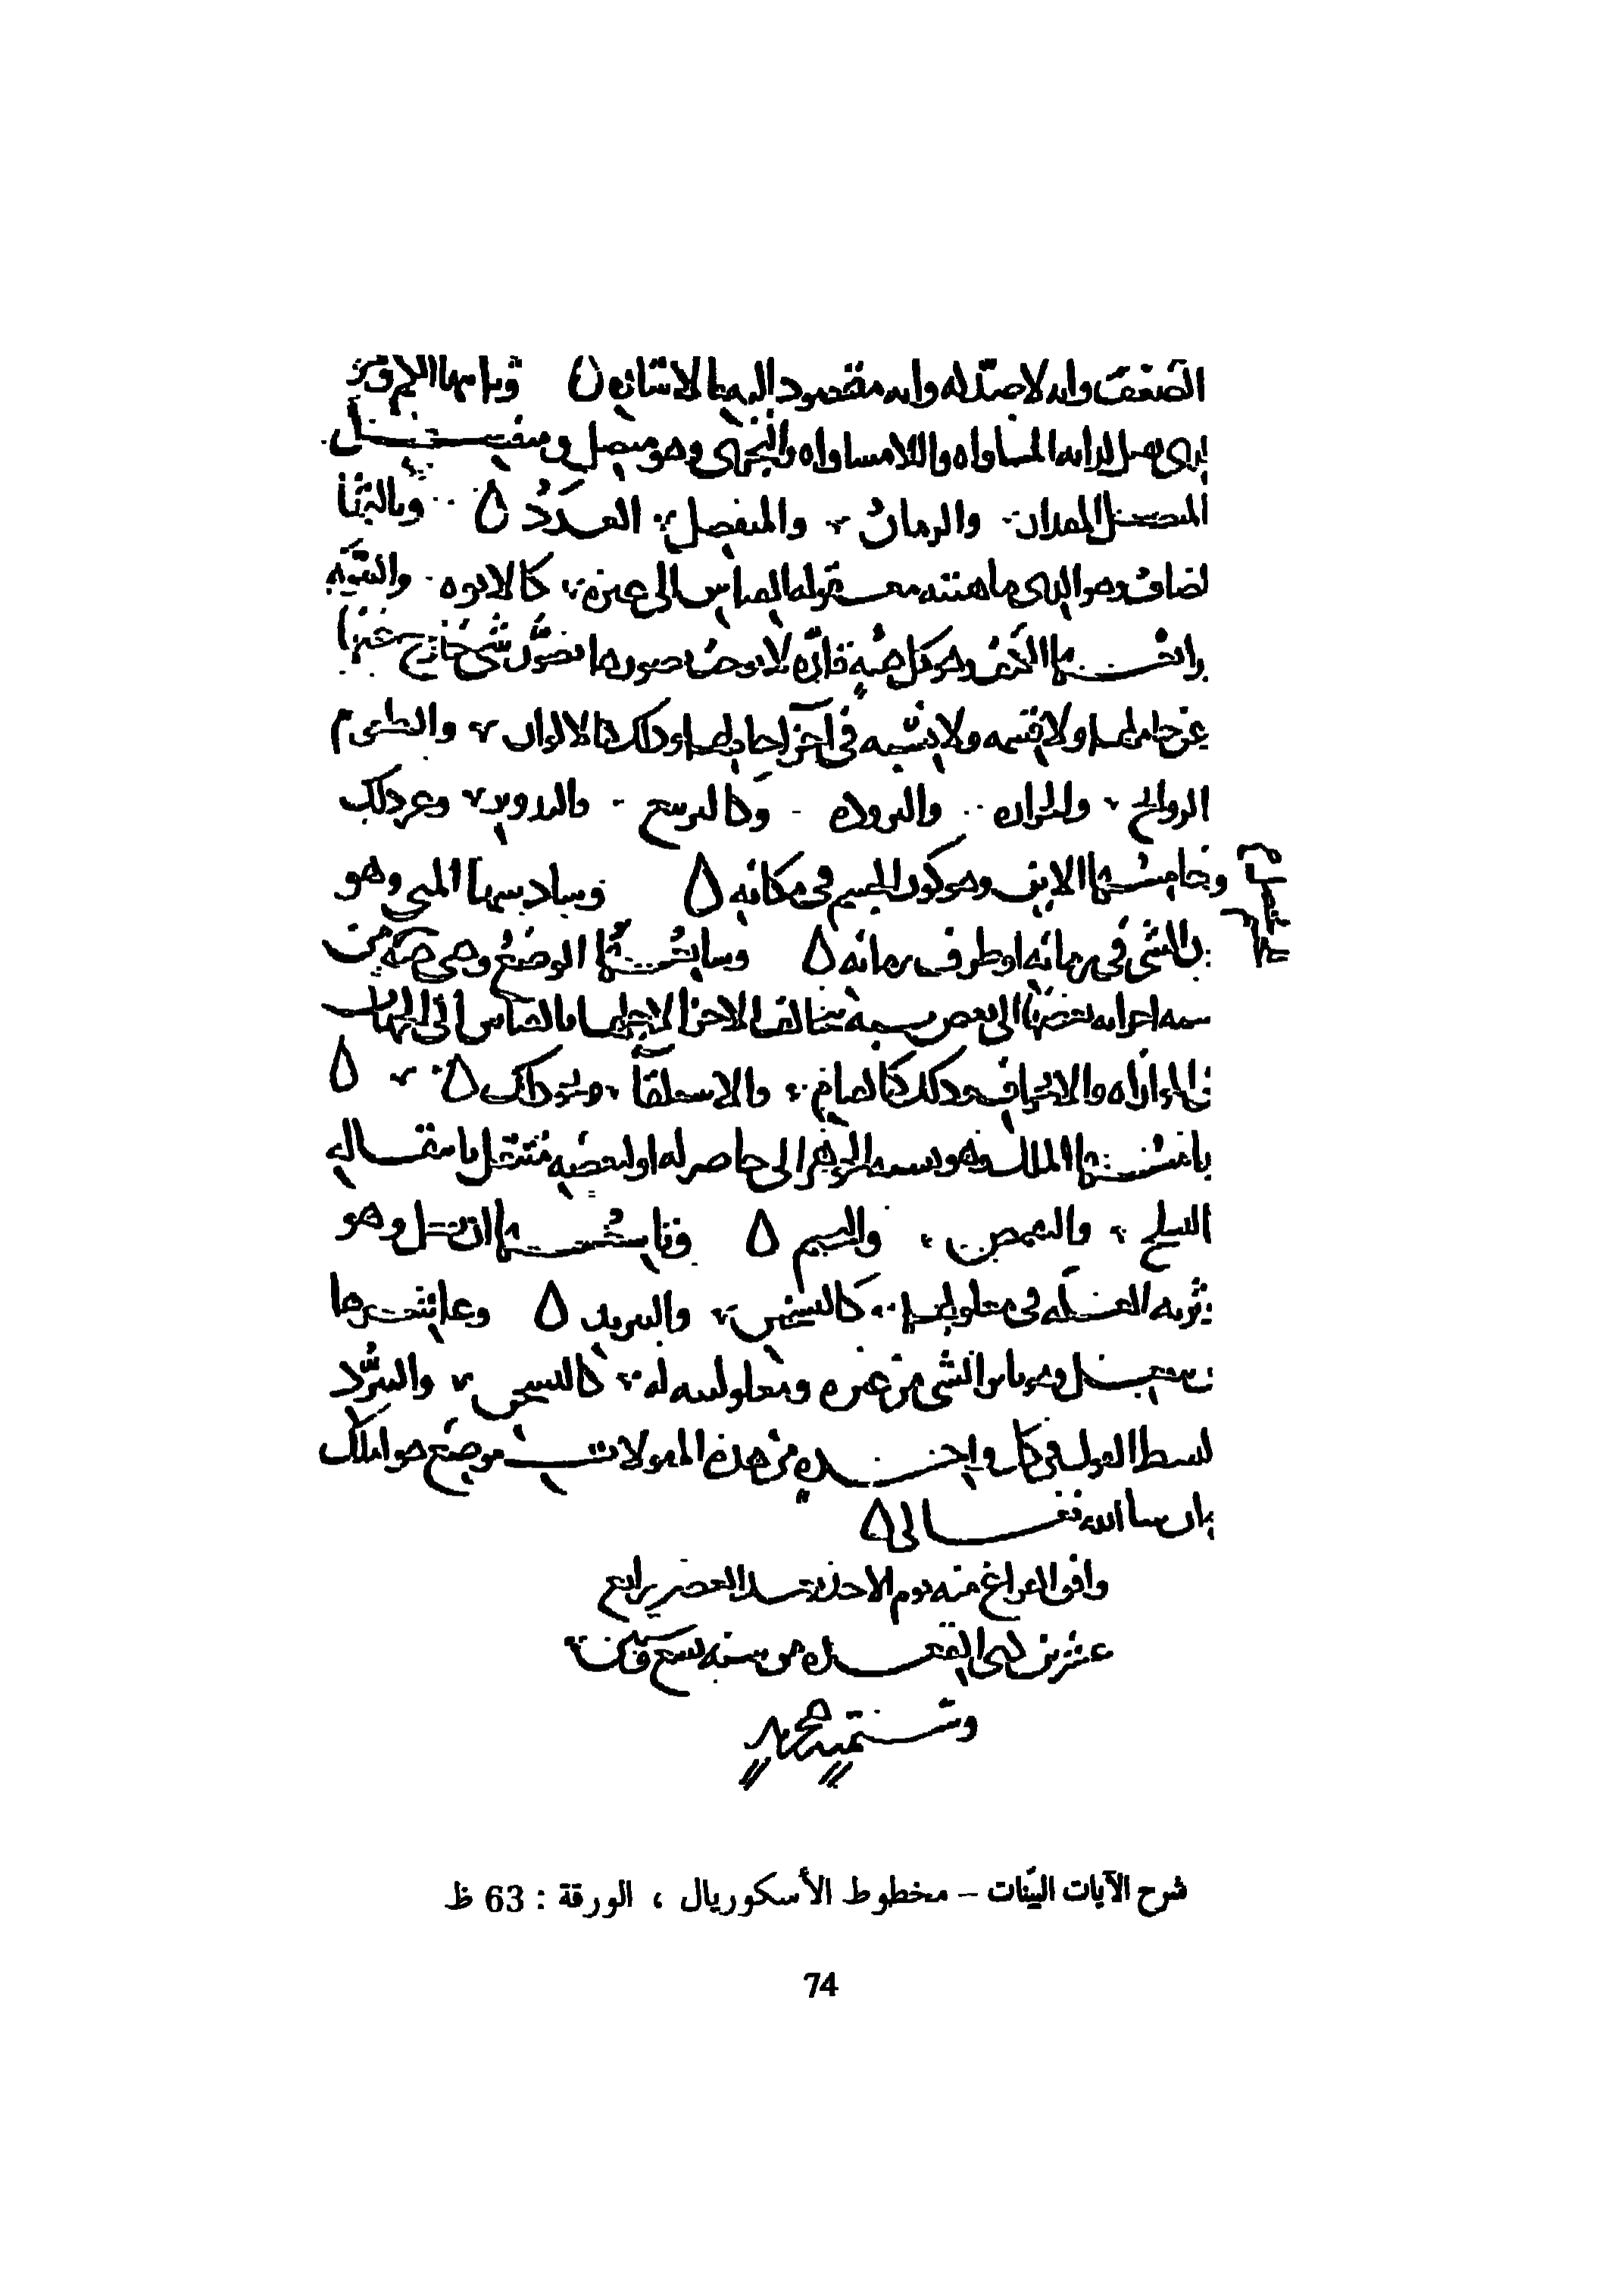 الضعف وانه لا ضد له وانه مقصود اليه بالاشارة وثانيها الكم وهو
الذي يقبل لذاته المساواه واللامساواه والتجزي وهو متصل ومنفصل
المتصل المقدار والزمان والمنفصل العدد وثالثها
لمضاف وهو الذي ماهيته معقوله بالقياس الى غيره كالابوه والبنوه
رابعتها الكيف وهو كل هيه قاره لا يوجب تصورها تصور شي خارج عنها
عن حاملها ولا قسمه ولا نسبه في اجزا حاملها وذلك كالالوان والطعوم
الروايح والحراره والبروده وكالتربيع والتدوير وغير ذلك
وخامستها الاين وهو كون الجسم في مكانه وسادستها المتى وهو
كون الشي في زمانه او طرف زمانه وسابعتها الوضع وهي هيه من
نسبه اجزايه بعضها الى بعض نسبه تتخالف الاجزا لاجلها بالقياس الى الجهات
في الموازاه والانحراف وذلك كالقيام والاستلقا ونحو ذلك
ثامنتها الملك وهو نسبه الجوهر الى حاصر له او لبعضه منتقل بانتقاله
التسلح والتقمص وتاسعتها ان يفعل وهو
تاثير العله في معلولها كالتسخين والتبريد وعاشرتها
ان ينفعل وهو تاثر الشي من غيره ومعلوليته له كالتسخن والتبرد
لبسط القول في كل واحده من هذه المقولات موضع هو املك
به ان شا الله تعالى
وافق الفراغ منه يوم الاحد بعد العصر رابع
عشرين ذي القعده من سنه تسع
وستميه
شرح الآيات البيّنات – مخطوط الأسكوريال ، الورقة : 63 ظ
74